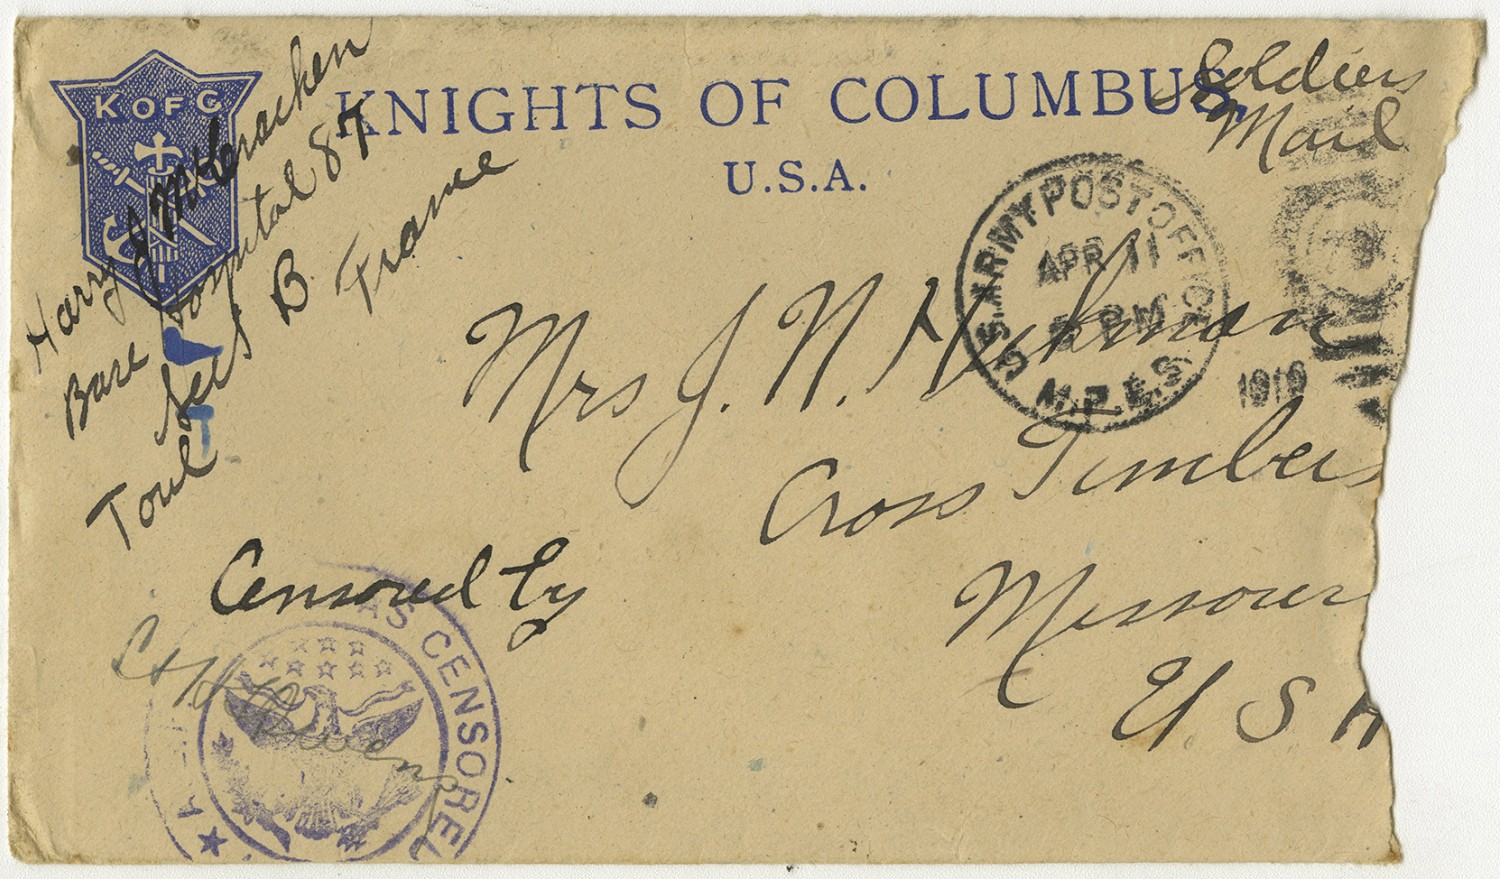 K OF C
KNIGHTS OF COLUMBUS,
U.S.A.
Soldiers
Mail
Harry J McCracken
Base Hospital 87
Sect B France
Toul
U.S. ARMY POST OFFICE
APR 11
PM
M.P.E.S.
1919
Mrs J. N. Hickman
Cross Timbers
Missouri
U S A
Censored by
AS CENSORED